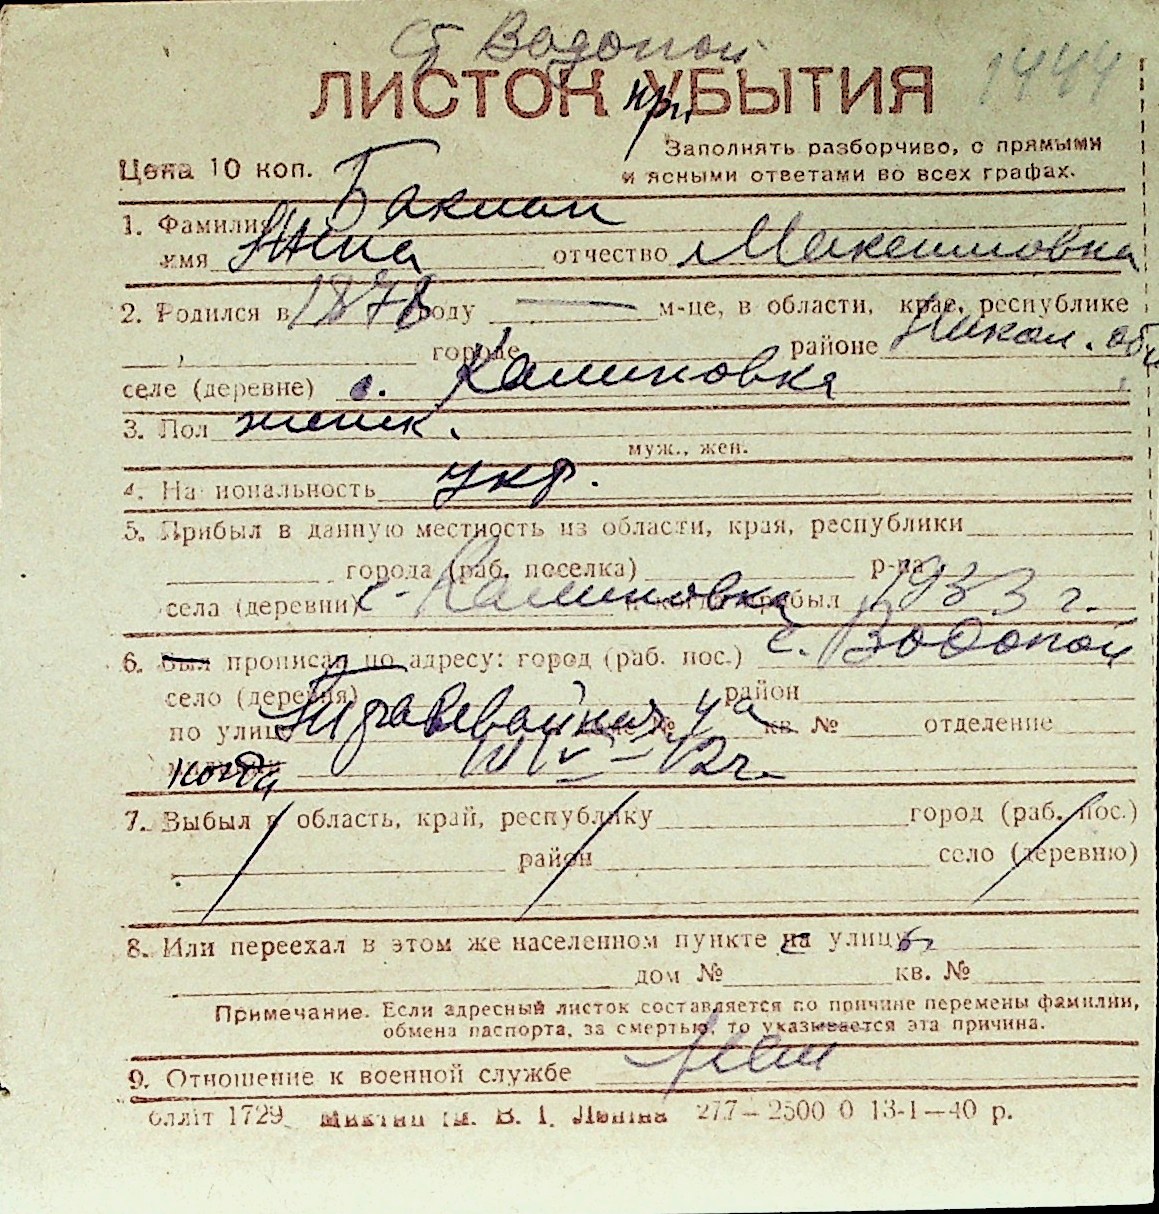 Ст Водопой
1444
ЛИСТОК УБЫТИЯ
при
Цена 10 коп.
Заполнять разборчиво, с прямыми
и ясными ответами во всех графах.
1. Фамилия
имя отчество Максимовна
2. Родился в 1878 году — м-це, в области, крае, республике
городе районе Никол. обл
селе (деревне) с. Калиновка
3. Пол женск.
муж., жен.
4. Национальность укр.
5. Прибыл в данную местность из области, края, республики
города (раб. поселка) р-на
села (деревни) с. Калиновка и когда прибыл 1933 г.
6. был прописан по адресу: город (раб. пос.) с. Водопой
село (деревня) район
по улице № 4а кв. № отделение
когда 42г.
7. Выбыл в область, край, республику город (раб. пос.)
район село (деревню)
8. Или переехал в этом же населенном пункте на улицу
дом № кв. №
Примечание. Если адресный листок составляется по причине перемены фамилии,
обмена паспорта, за смертью, то указывается эта причина.
9. Отношение к военной службе
блліт 1729 ім. В. І. Леніна 277—2500 0 13-1—40 р.